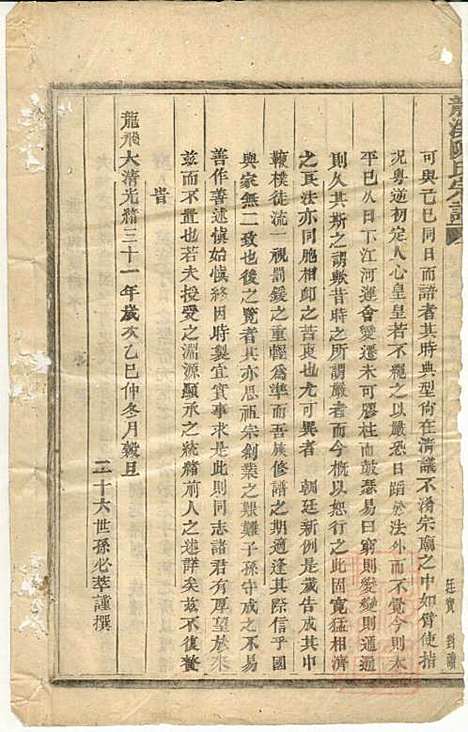 龍溪陳氏宗譜
可與己巳同日而語者其時典型尚在清議不淆宗廟之中如臂使指
況粤逆初定人心皇皇若不範之以嚴恐日蹈於法外而不覺今則太
平已久日下江河運會變遷未可膠柱而鼓瑟易曰窮則變變則通通
則久其斯之謂歟昔時之所謂嚴者而今概以恕行之此固寬猛相濟
之良法亦同胞相卹之苦衷也尤可異者 朝廷新例是歲告成其中
鞭樸徒流一視罰鍰之重輕為準而吾族修譜之期適逢其際信乎國
與家無二致也後之覽者其亦思祖宗創業之艱難子孫守成之不易
善作善述慎始慎終因時製宜實事求是此則同志諸君有厚望於來
茲而不置也若夫授受之淵源顯承之統緒前人之述詳矣茲不復贅
旹
龍飛大清光緒三十一年歲次乙巳仲冬月穀旦
二十六世孫必萃謹撰